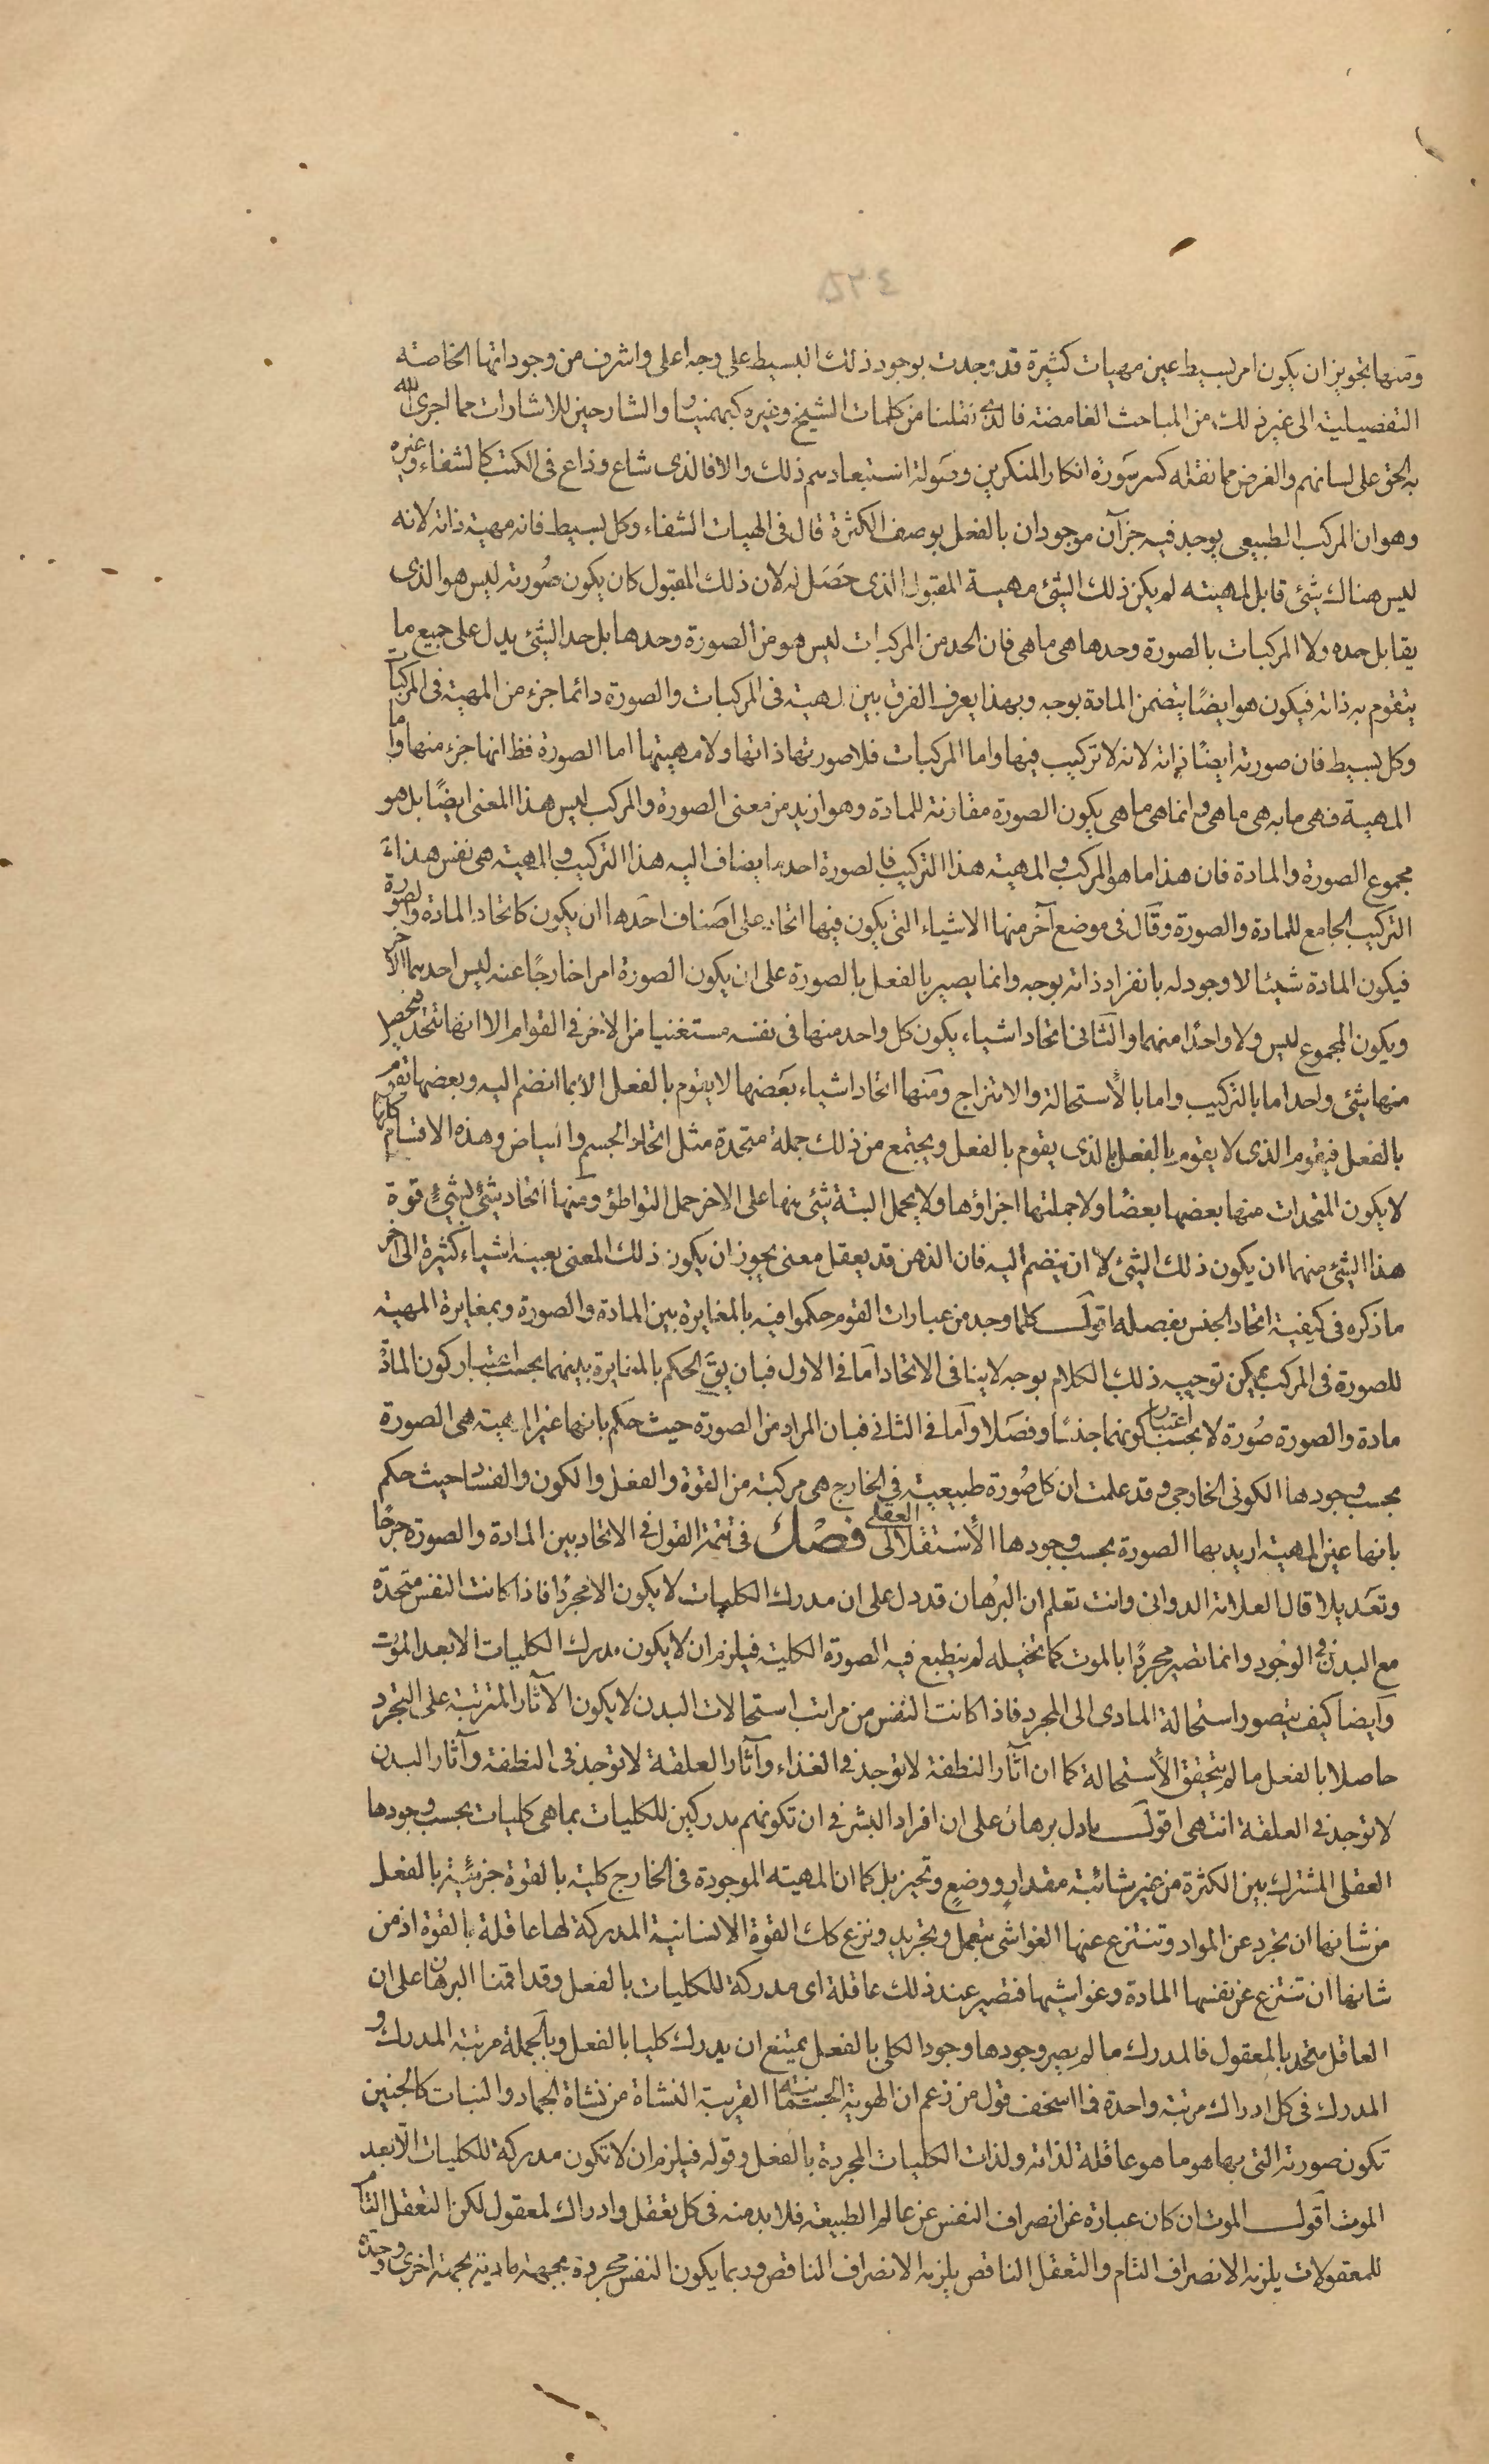 ومنها تجويز ان يكون امر بسيط عين مهيات كثيرة قد وجدت بوجود ذلك البسيط على وجه اعلى واشرف من وجوداتها الخاصته
التفصيلية الى غير ذلك من المباحث الغامضته فالذى نقلنا من كلمات الشيخ وغيره كبهمنيار والشارحين للاشارات مما اجرى الله
به الحق على لسانهم والغرض مما نقله كسر سَورة انكار المنكرين وصَولة استبعادهم ذلك والا فالذى شاع وذاع فى الكتب كالشفاء وغيره
وهو ان المركب الطبيعى يوجد فيه جزآن موجودان بالفعل بوصف الكثرة قال فى الهيات الشفاء وكل بسيط فانه مهيته ذاته لانه
ليس هناك شئ قابل لمهيته لم يكن ذلك الشئ مهيسة المقبول الذى حَصَل له لان ذلك المقبول كان يكون صُورته ليس هو الذى
يقابل حده ولا المركبات بالصورة وحدها هى ما هى فان الحد من المركبات ليس هو من الصورة وحدها بل حد الشئ يدل على جميع ما
يتقوم به ذاته فيكون هو ايضًا يتضمن المادة بوجه وبهذا يعرف الفرق بين المهية فى المركبات والصورة دائما جزء من المهية فى المركبات
وكل بسيط فان صورته ايضًا ذاته لانه لا تركيب فيها واما المركبات فلا صورتها ذاتها ولا مهيتها اما الصورة فظ انها جزء منها واما
المهية فهى ما به هى ما هى وانما هى ما هى بكون الصورة مقارنة للمادة وهو ازيد من معنى الصورة والمركب ليس هذا المعنى ايضًا بل هو
مجموع الصورة والمادة فان هذا ما هو المركب والمهية هذا التركيب فالصورة احد ما يضاف اليه هذا التركيب والمهية هى نفس هذا
التركيب الجامع للمادة والصورة وقَال فى موضع آخر منها الاشياء التى يكون فيها اتحاد على اصَناف احَدها ان يكون كاتحاد المادة والصورة
فيكون المادة شيئا لا وجود له بانفراد ذاته بوجه وانما يصير بالفعل بالصورة على ان يكون الصورة امرا خارجًا عنه ليس احدهما الآخر
ويكون المجموع ليس ولا واحدًا منهما والثَانى اتحاد اشياء يكون كل واحد منها فى نفسه مستغنيا من الآخر فى القوام الا انها تتحد فيحصل
منها شئ واحد اما بالتركيب واما بالاستحالة والامتزاج ومَنها اتحاد اشياء بعَضها لا يقوم بالفعل الا بما انضم اليه وبعضها تقوم
بالفعل فيقوم الذى لا يقوم بالفعل بالذى يقوم بالفعل ويجتمع من ذلك جملة متحدة مثل اتحاد الجسم والبياض وهذه الاقسام كلها
لا يكون المتحدات منها بعضها بعضًا ولا جملتها اجزاؤها ولا يحمل البتة شئ منها على الاخر حمل التواطؤ ومنها اتحاد شئ بشئ قوة
هذا الشئ منهما ان يكون ذلك الشئ لا ان ينضم اليه فان الذهن قد يعقل معنى يجوز ان يكون ذلك المعنى بعينه اشياء كثيرة الى آخر
ما ذكره فى كيفية اتحاد الجنس بفصله اقول كلما وجد من عبارات القوم حكموا فيه بالمغايرة بين المادة والصورة وبمغايرة المهية
للصورة فى المركب يمكن توجيه ذلك الكلام بوجه لا ينافى الاتحاد امَا فى الاول فبان يقَ الحكم بالمغايرة بينهما بحسب اعتبار كون المادة
مادة والصورة صُورة لا بحسب اعتبار كونهما جنسًا وفصَلا وآما فى الثانى فبان المراد من الصورة حيث حكم بانها غير المهية هى الصورة
بحسب وجودها الكونى الخارجى وقد علمت ان كل صُورة طبيعية فى الخارج هى مركبته من القوة والفعل والكون والفساد حيث حكم
بانها عين المهية اريد بها الصورة بحسب وجودها الاستقلالى العقلى فصل فى تتمة القول فى الاتحاد بين المادة والصورة جرحًا
وتعَديلا قال العلامة الدوانى وانت تعلم ان البرهان قد دل على ان مدرك الكليات لا يكون الا مجردًا فاذا كانت النفس متحدة
مع البدن فى الوجود وانما تصير مجردًا بالموت كما تخيله لم ينطبع فيه الصورة الكلية فيلزم ان لا يكون مدرك الكليات الا بعد الموت
وآيضا كيف يتصور استحالة المادى الى المجرد فاذا كانت النفس من مراتب استحالات البدن لا يكون الآثار المترتبة على التجرد
حاصلا بالفعل ما لم يتحقق الاستحالة كما ان آثار النطفة لا توجد فى الغذاء وآثار العلقة لا توجد فى النطفة وآثار البدن
لا توجد فى العلقة انتهى اقول ما دل برهان على ان افراد البشر فى ان تكونهم مدركين للكليات بما هى كليات بحسب وجودها
العقلى المشترك بين الكثرة من غير شائبة مقدار ووضع وتحيز بل كما ان المهيته الموجودة فى الخارج كلية بالقوة جزئيّة بالفعل
من شانها ان تجرد عن المواد وتنتزع عنها الغواشى بتعمل وتجريد ونزع كك القوة الانسانية المدركة لها عاقلة بالقوة اذ من
شانها ان تنتزع عن نفسها المادة وغواشيها فتصير عند ذلك عاقلة اى مدركة للكليات بالفعل وقد اقمنا البرهان على ان
العاقل متحد بالمعقول فالمدرك ما لم يصر وجودها وجود الكلى بالفعل يمتنع ان يدرك كليا بالفعل وبالجملة مرتبة المدرك و
المدرك فى كل ادراك مرتبة واحدة فما اسخف قول من زعم ان الهوية الجسمانيته القريبة النشاة من نشاة الجماد والنبات كالجنين
تكون صورته التى بها هو ما هو عاقلة لذاته ولذات الكليات المجردة بالفعل وقوله فيلزم ان لا تكون مدركة للكليات الا بعد
الموت اَقول الموت ان كان عبارة عن انصراف النفس عن عالم الطبيعة فلا بد منه فى كل تعقل وادراك لمعقول لكن التعقل التام
للمعقولات يلزمه الانصراف التام والتعقل الناقص يلزمه الانصراف الناقص وربما يكون النفس مجردة بجهة مادية بجهة اخرى وحدة